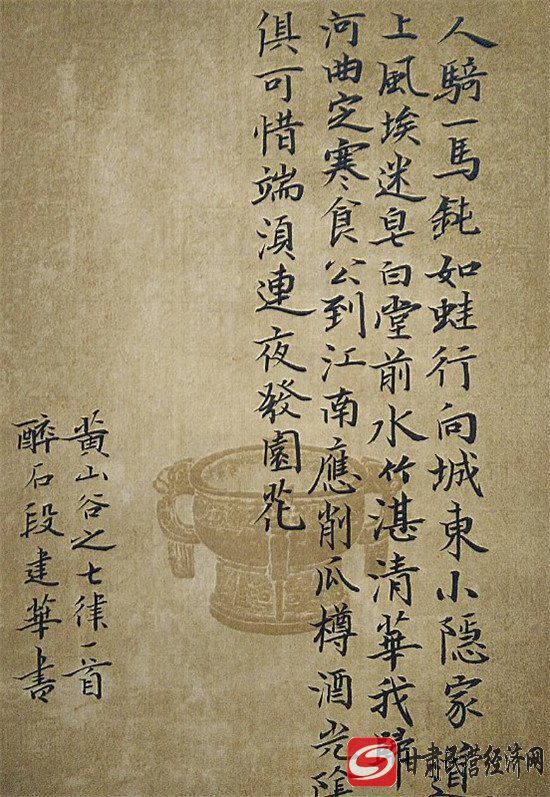 人騎一馬鈍如蛙行向城東小隱家道
上風埃迷皂白堂前水竹湛清華我歸
河曲定寒食公到江南應削瓜樽酒光陰
俱可惜端須連夜發園花
黄山谷之七律一首
醉石段建華書
甘肃民营经济网